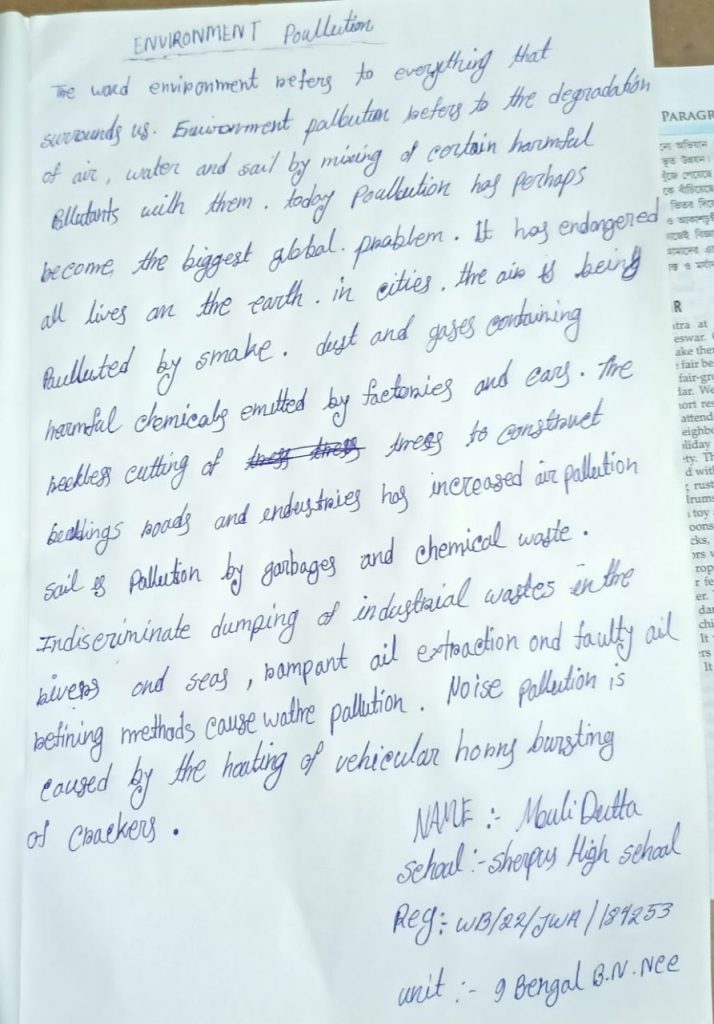 ENVIRONMENT Poullution
The word environment refers to everything that
surrounds us. Environment pallution refers to the degradation
of air, water and sail by mixing of certain harmful
Pallutants with them. today Poullution has perhaps
become the biggest global problem. It has endangered
all lives on the earth. in cities. the air is being
Paulluted by smake. dust and gases containing
harmful chemicals emitted by factories and cars. The
reckless cutting of trees to construct
roads and endustries has increased air pallution
sail is Pallution by garbages and chemical waste.
Indiscriminate dumping of industrial wastes in the
rivers and seas, rampant ail extraction and faulty ail
refining methods cause wathre pallution. Noise pallution is
caused by the hooting of vehicular horns bursting
of crackers.
NAME :- Mouli Dutta
School :- Sherpur High school
Reg: WB/22/JWA/184253
unit :- 9 Bengal B.N. Nee
PARAGR
R
tra at
eswar.
ake the
fair be
fair-gr
lar. We
ort res
attend
eighbo
liday
ty. Th
d with
rust
rums
toy
oons
cks,
ors
rop
r fe
er.
dar
chi
It
ers
It